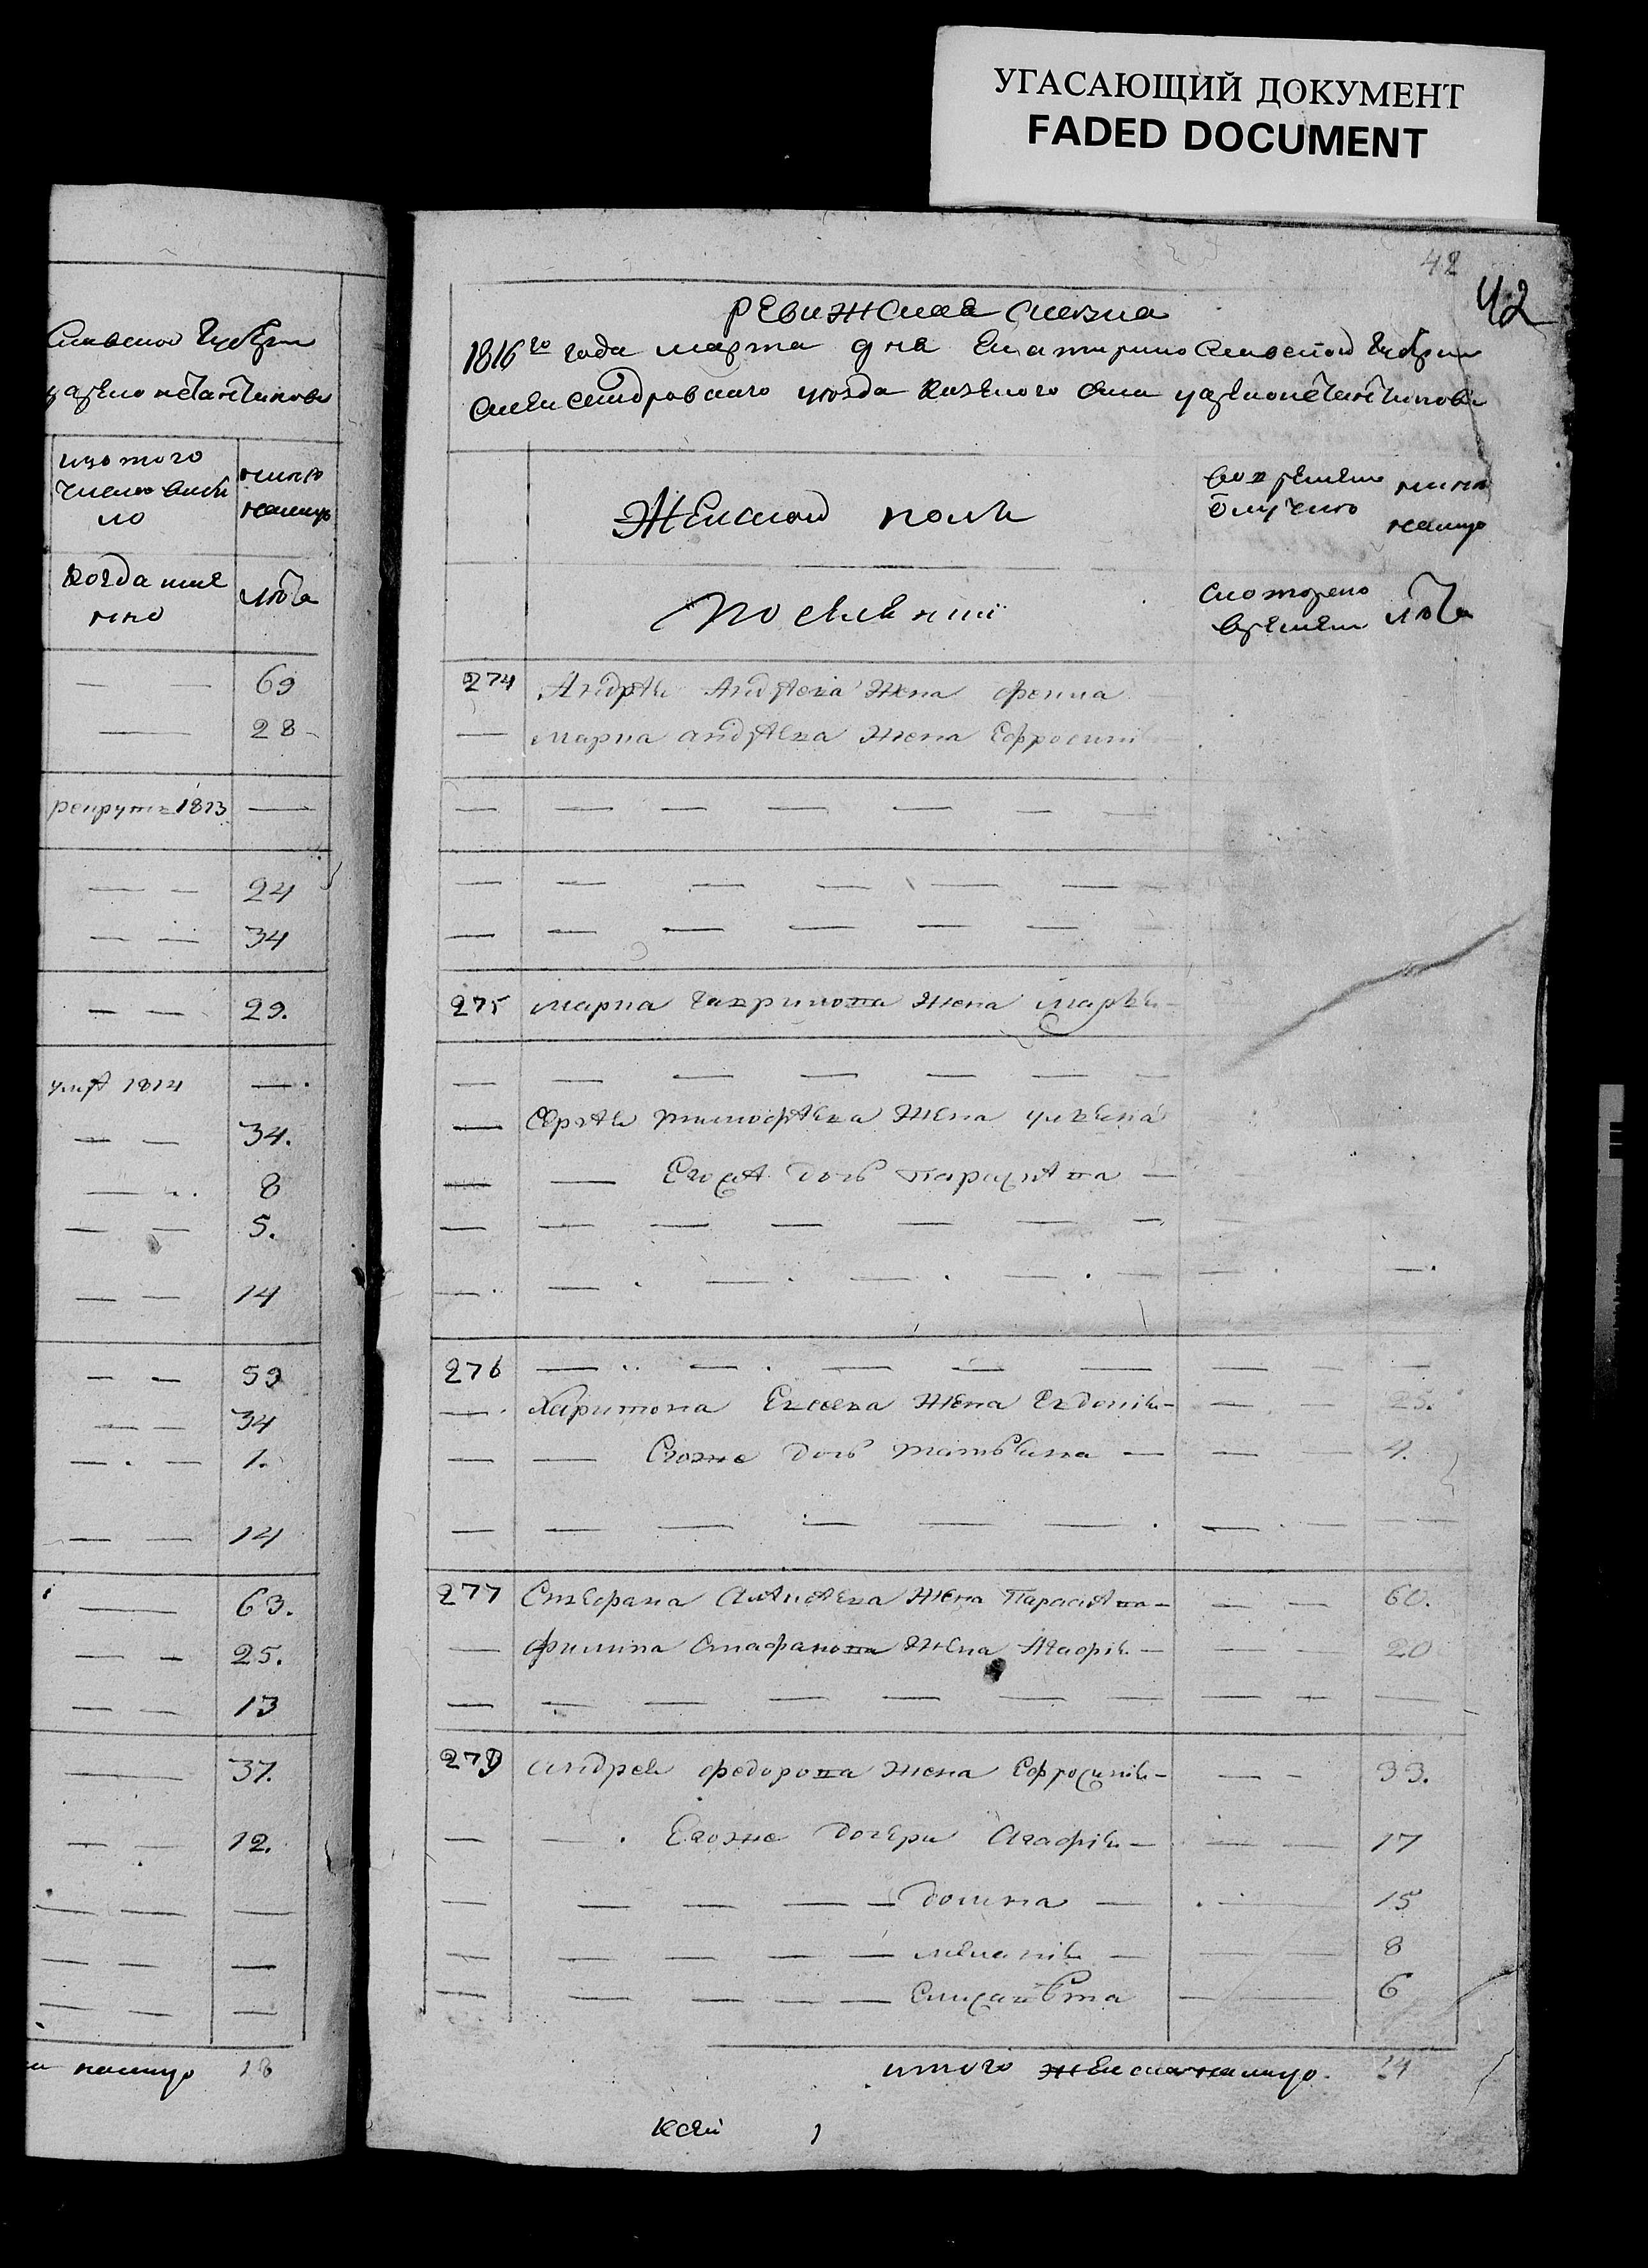 УГАСАЮЩИЙ ДОКУМЕНТ
FADED DOCUMENT
42
42
ревижская
1816го года марта дня Екатеринославской губернии
Александровского уезда казенного села
Женской полъ
во временной отлучке
ныне на лицо
поселяне
с которого времени
лета
274 Андрея Андреева жена
Марка андреева жена Ефросинiя
275 Марка Гаврилова жена Марфа
Сергея Тимофеева жена улияна
Егоже дочь Параскева
276
Харитона Евсеева жена Евдокiя 25.
Егоже дочь татьяна 4.
277 Стефана Алексеева жена Параскева 60.
Филипа Стефанова жена Агафiя 20
278 Андрея федорова жена Ефросинiя 39.
Егоже дочери Агафiя 17
домна 15
меланiя 8
Елисавета 6
итого женска на лицо 14
славской губернии
из того числа выбыло
ныне на лицо
когда именно
лета
69
28
рекрутъ 1813
24
34
29.
умре 1814
34.
8
5.
14
59
34
1.
14
63.
25.
13
37.
12.
налицо 18